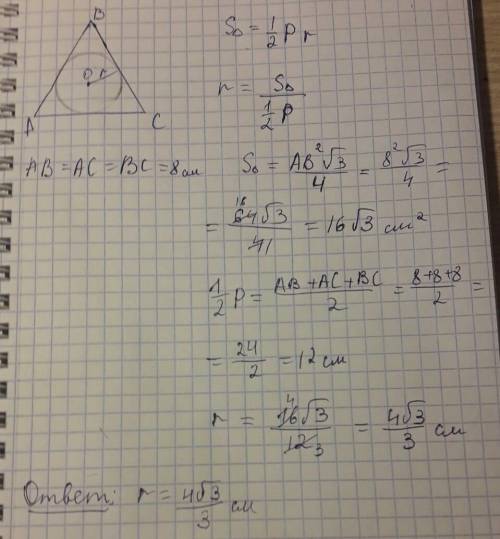 B
O r
A
C
S₀ = 1/2 P r
r = S₀ / (1/2 P)
AB = AC = BC = 8 см
S₀ = AB²√3 / 4 = 8²√3 / 4 =
= 64√3 / 4 = 16√3 см²
1/2 P = (AB + AC + BC) / 2 = (8+8+8) / 2 =
= 24 / 2 = 12 см
r = 16√3 / 12 = 4√3 / 3 см
Ответ: r = 4√3 / 3 см